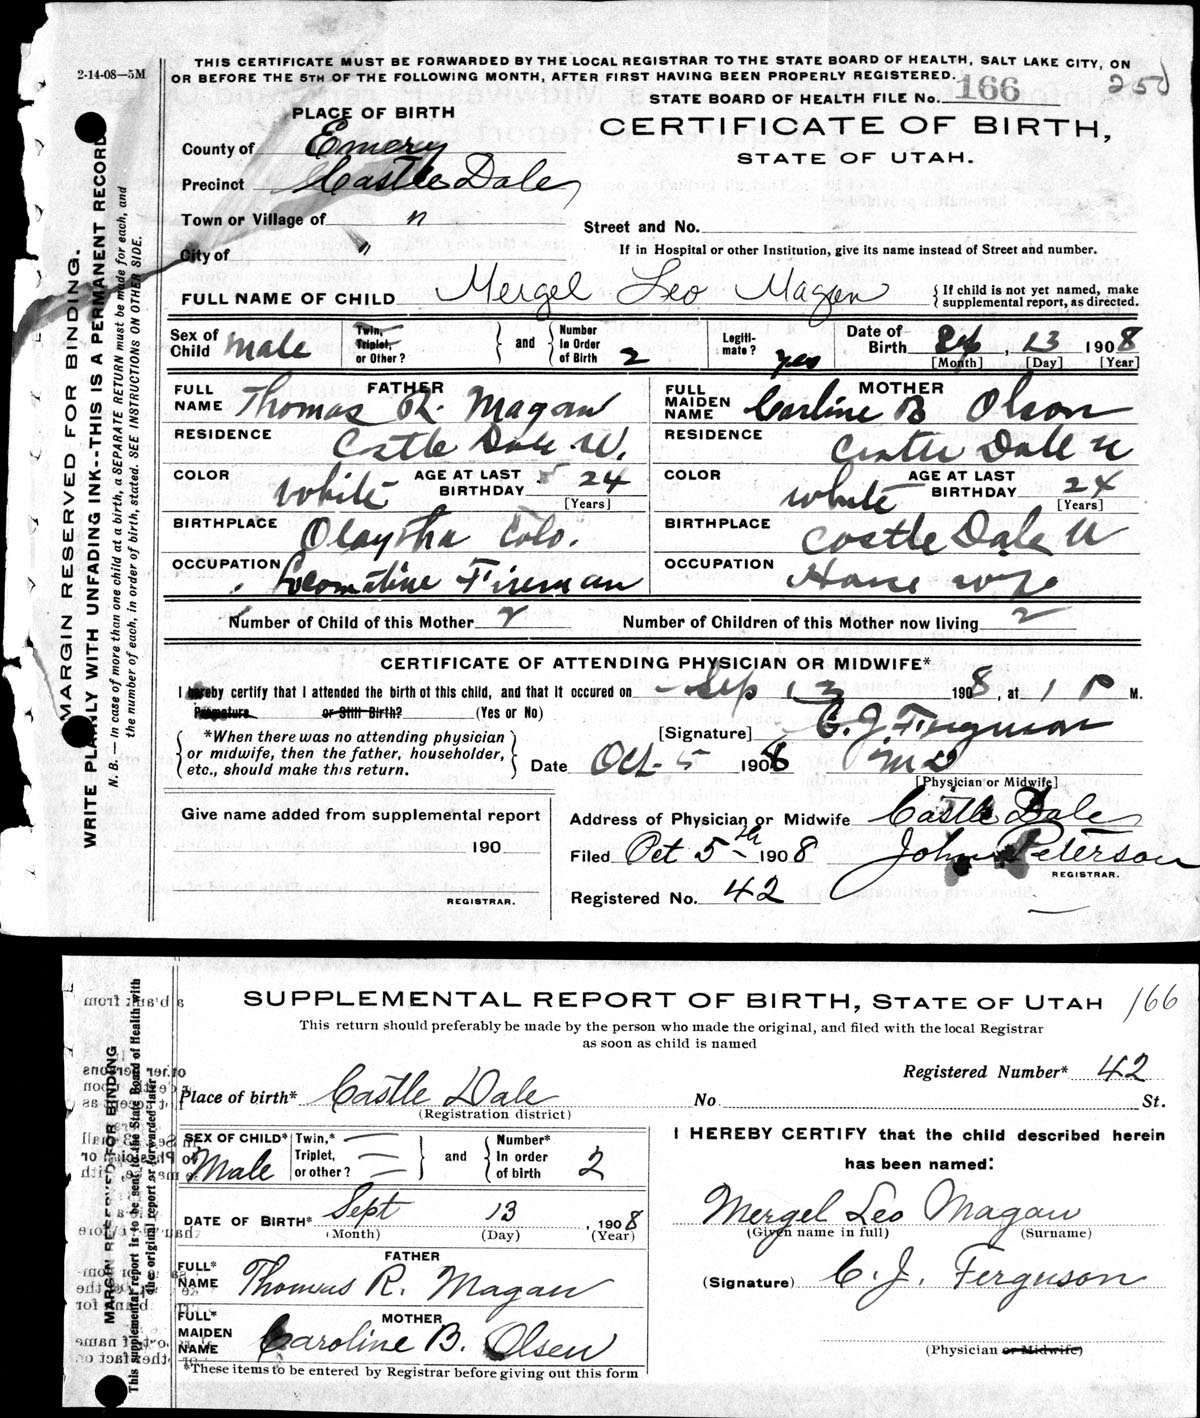 2-14-08—5M
THIS CERTIFICATE MUST BE FORWARDED BY THE LOCAL REGISTRAR TO THE STATE BOARD OF HEALTH, SALT LAKE CITY, ON
OR BEFORE THE 5TH OF THE FOLLOWING MONTH, AFTER FIRST HAVING BEEN PROPERLY REGISTERED.
250
STATE BOARD OF HEALTH FILE No. 166
CERTIFICATE OF BIRTH,
STATE OF UTAH.
PLACE OF BIRTH
County of Emery
Precinct Castle Dale
Town or Village of "
City of "
Street and No.
If in Hospital or other Institution, give its name instead of Street and number.
FULL NAME OF CHILD Mergel Leo Magan { If child is not yet named, make
supplemental report, as directed.
Sex of Child Male Twin, Triplet, or Other? } and { Number In Order of Birth 2 Legiti-mate? yes Date of Birth Sep, 13 1908
[Month] [Day] [Year]
FATHER
FULL NAME Thomas R. Magan
RESIDENCE Castle Dale U.
COLOR White AGE AT LAST BIRTHDAY 24
[Years]
BIRTHPLACE Olaytha Colo.
OCCUPATION Locomotive Fireman
MOTHER
FULL MAIDEN NAME Carline B Olson
RESIDENCE Castle Dale U
COLOR White AGE AT LAST BIRTHDAY 24
[Years]
BIRTHPLACE Castle Dale U
OCCUPATION House wife
Number of Child of this Mother 2 Number of Children of this Mother now living 2
CERTIFICATE OF ATTENDING PHYSICIAN OR MIDWIFE*
I hereby certify that I attended the birth of this child, and that it occured on Sep 13 1908, at 1 P M.
Premature or Still Birth? (Yes or No)
*When there was no attending physician
or midwife, then the father, householder,
etc., should make this return.
[Signature] C. J. Ferguson
Date Oct. 5 1908 MD
[Physician or Midwife]
Give name added from supplemental report
190
REGISTRAR.
Address of Physician or Midwife Castle Dale
Filed Oct 5th 1908 John Peterson
REGISTRAR.
Registered No. 42
MARGIN RESERVED FOR BINDING.
WRITE PLAINLY WITH UNFADING INK--THIS IS A PERMANENT RECORD
N. B.— In case of more than one child at a birth, a SEPARATE RETURN must be made for each, and
the number of each, in order of birth, stated. SEE INSTRUCTIONS ON OTHER SIDE.
SUPPLEMENTAL REPORT OF BIRTH, STATE OF UTAH 166
This return should preferably be made by the person who made the original, and filed with the local Registrar
as soon as child is named
Registered Number* 42
Place of birth* Castle Dale No St.
(Registration district)
SEX OF CHILD* Male Twin,* Triplet, or other? } and { Number* In order of birth 2
DATE OF BIRTH* Sept 13, 1908
(Month) (Day) (Year)
FATHER
FULL* NAME Thomas R. Magan
MOTHER
FULL* MAIDEN NAME Caroline B. Olsen
*These items to be entered by Registrar before giving out this form
I HEREBY CERTIFY that the child described herein
has been named:
Mergel Leo Magan
(Given name in full) (Surname)
(Signature) C. J. Ferguson
(Physician or Midwife)
MARGIN RESERVED FOR BINDING
This supplemental report is to be sent to the State Board of Health with
the original report or forwarded later